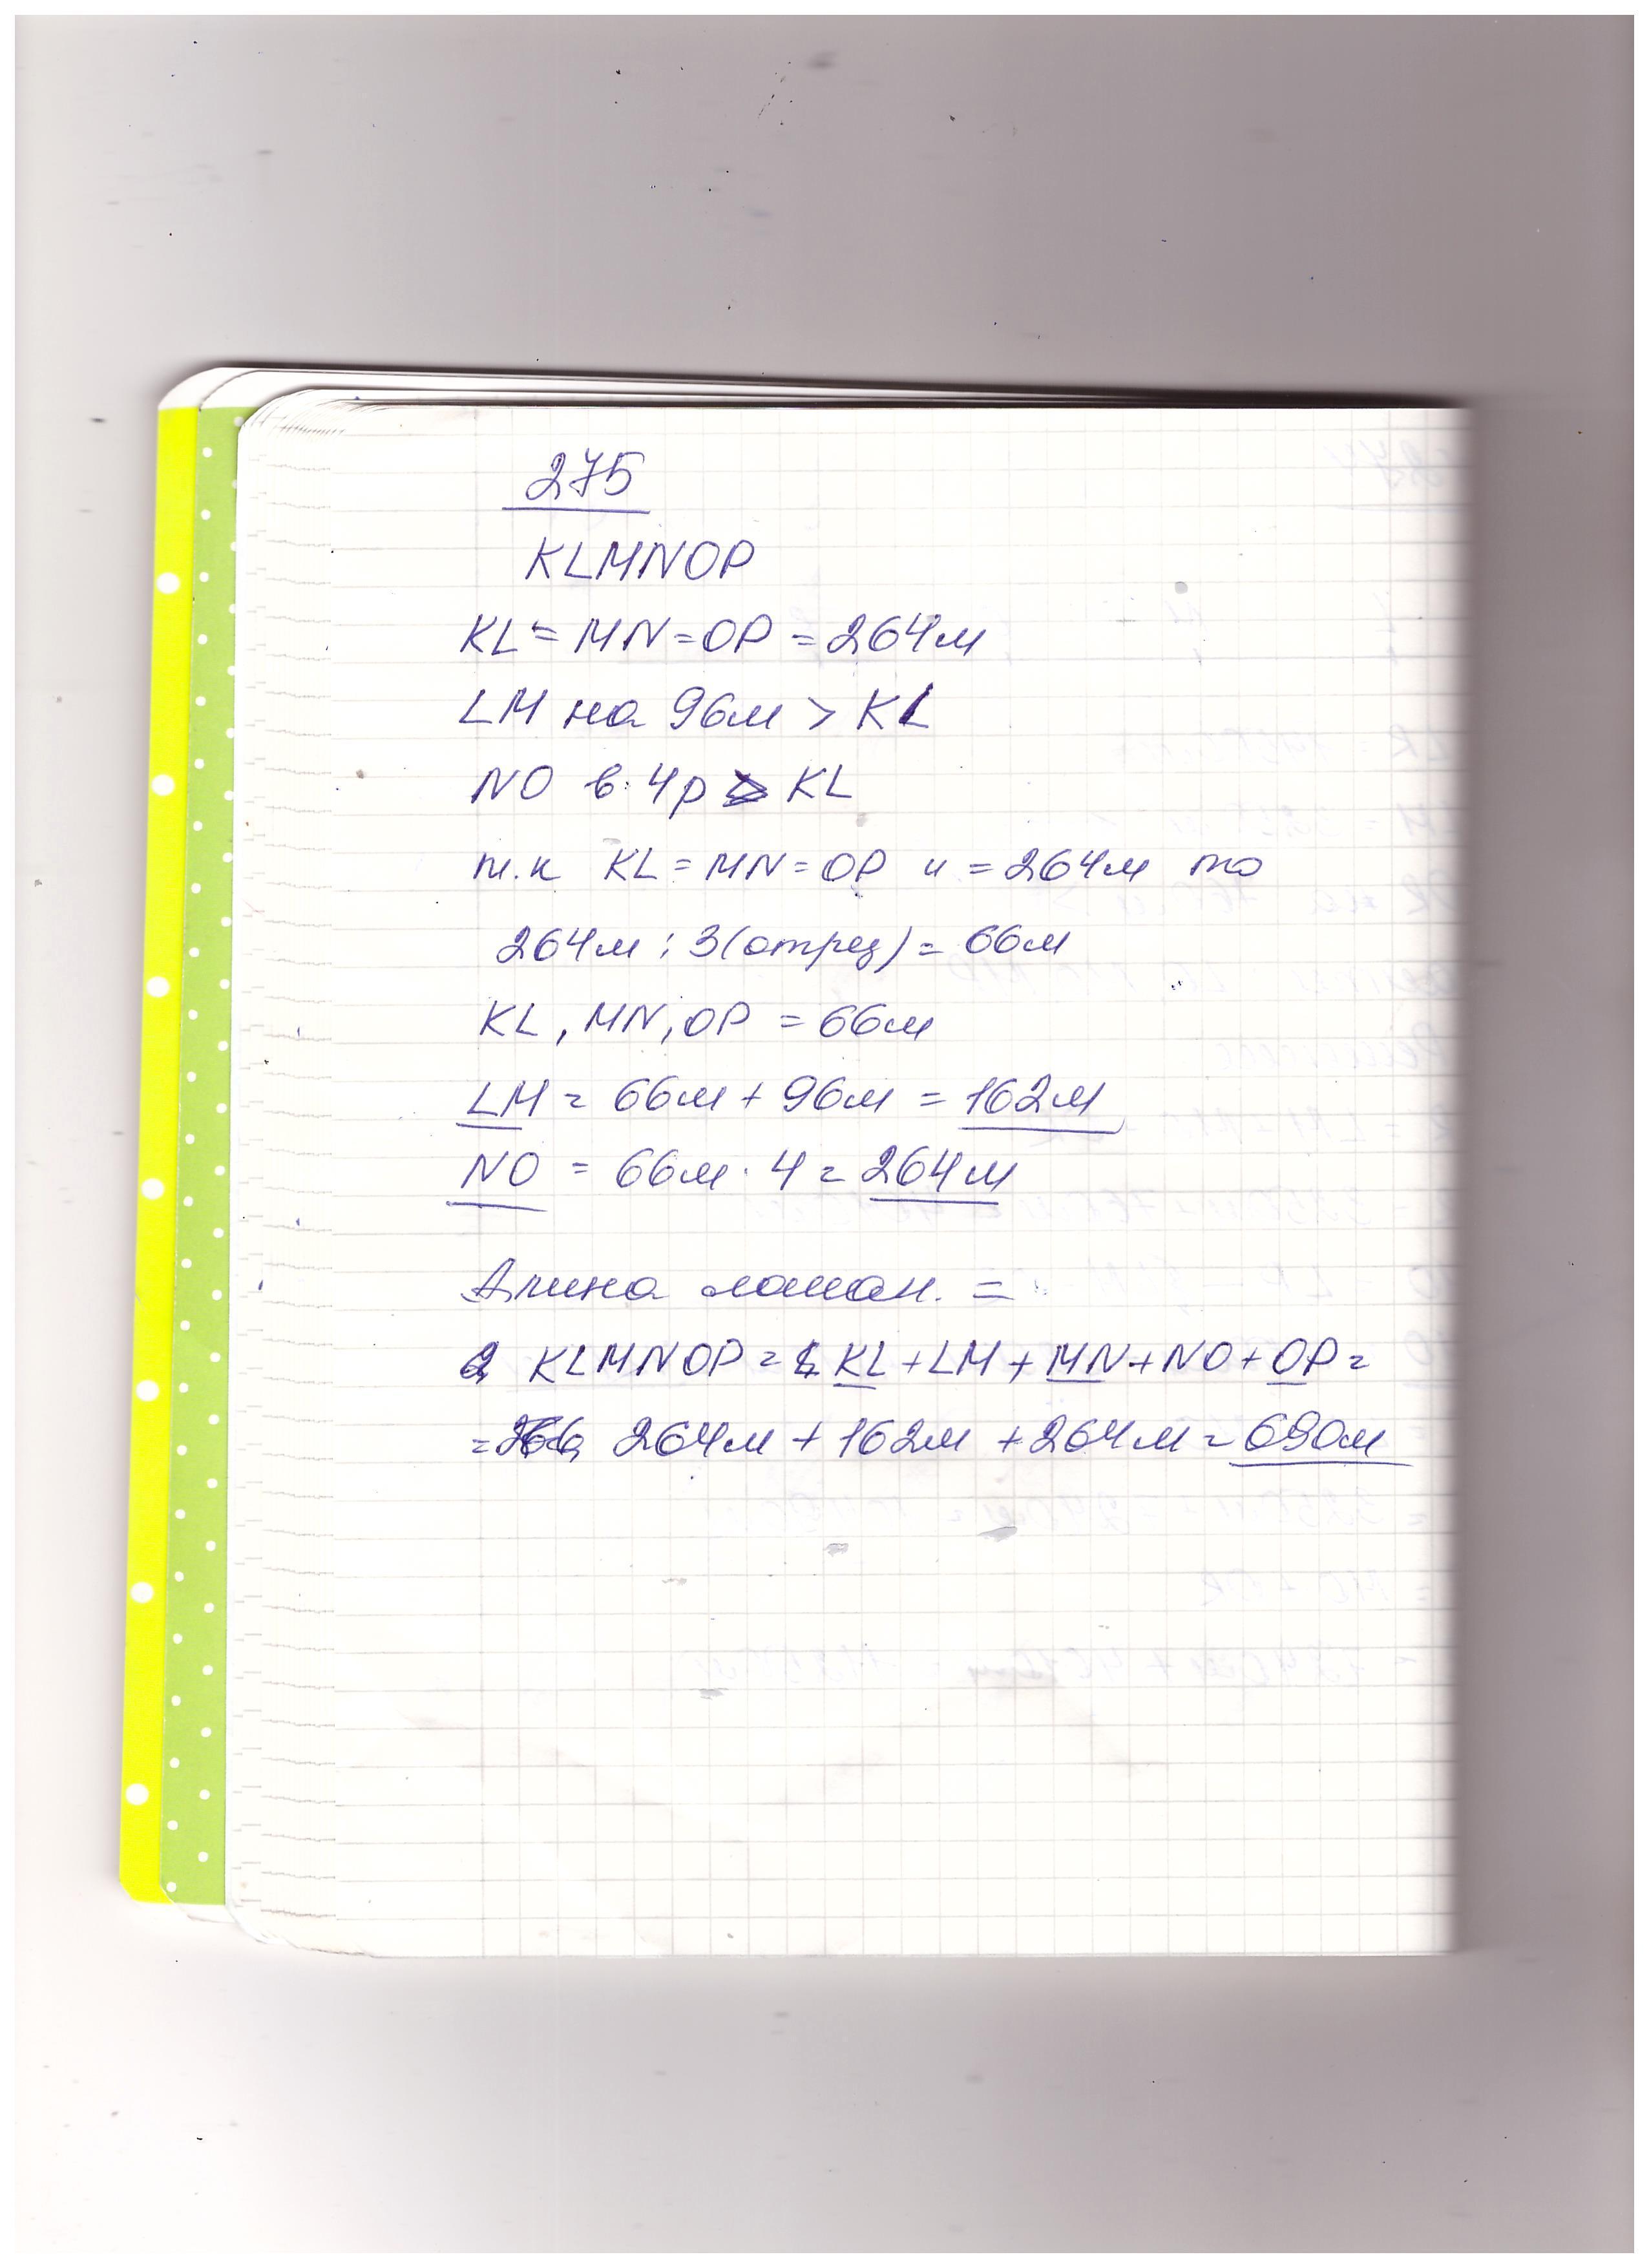 275
KLMNOP
KL = MN = OP = 264м
LM на 96м > KL
NO в 4р > KL
т.к KL = MN = OP и = 264м то
264м : 3(отрез) = 66м
KL, MN, OP = 66м
LM = 66м + 96м = 162м
NO = 66м · 4 = 264м
Длина ломан. =
KLMNOP = KL + LM + MN + NO + OP =
= 264м + 162м + 264м = 690м